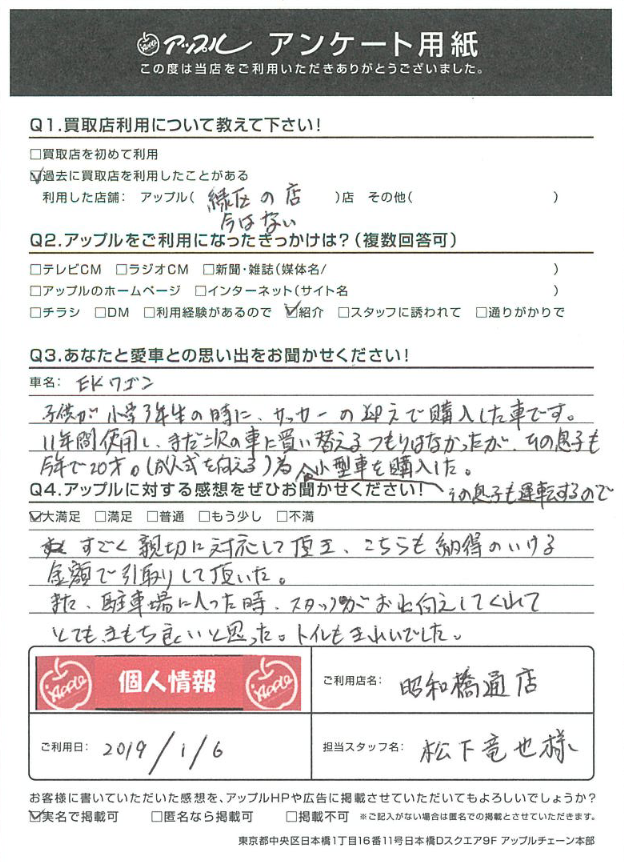 Apple アップル アンケート用紙
この度は当店をご利用いただきありがとうございました。
Q1.買取店利用について教えて下さい!
□買取店を初めて利用
☑過去に買取店を利用したことがある
利用した店舗: アップル( 緑区の店 )店 その他( )
今はない
Q2.アップルをご利用になったきっかけは?(複数回答可)
□テレビCM □ラジオCM □新聞・雑誌(媒体名/ )
□アップルのホームページ □インターネット(サイト名 )
□チラシ □DM □利用経験があるので ☑紹介 □スタッフに誘われて □通りがかりで
Q3.あなたと愛車との思い出をお聞かせください!
車名: EKワゴン
子供が小学3年生の時に、サッカーの迎えで購入した車です。
11年間使用し、まだ次の車に買い替えるつもりはなかったが、その息子も
今年で20才。(成人式を向える)為 小型車を購入した。
その息子も運転するので
Q4.アップルに対する感想をぜひお聞かせください!
☑大満足 □満足 □普通 □もう少し □不満
すごく親切に対応して頂き、こちらも納得のいける
金額で引取りして頂いた。
また、駐車場に入った時、スタッフがお出向えしてくれて
とてもきもち良いと思った。トイレもきれいでした。
Apple 個人情報 Apple
ご利用店名: 昭和橋通店
ご利用日: 2019/1/6
担当スタッフ名: 松下竜也様
お客様に書いていただいた感想を、アップルHPや広告に掲載させていただいてもよろしいでしょうか?
☑実名で掲載可 □匿名なら掲載可 □掲載不可 ※ご記入がない場合は匿名での掲載とさせていただきます。
東京都中央区日本橋1丁目16番11号日本橋Dスクエア9F アップルチェーン本部